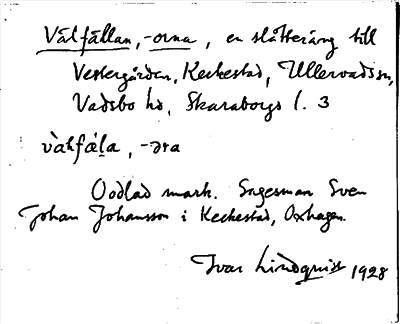 Vålfållan, -orna, en slåtteräng till
Vestergården, Keckestad, Ullervads sn,
Vadsbo hd, Skaraborgs l. 3
vàłfǻla, -əra
Oodlad mark. Sagesman Sven
Johan Johansson i Keckestad, Oxhagen.
Ivar Lindquist 1928